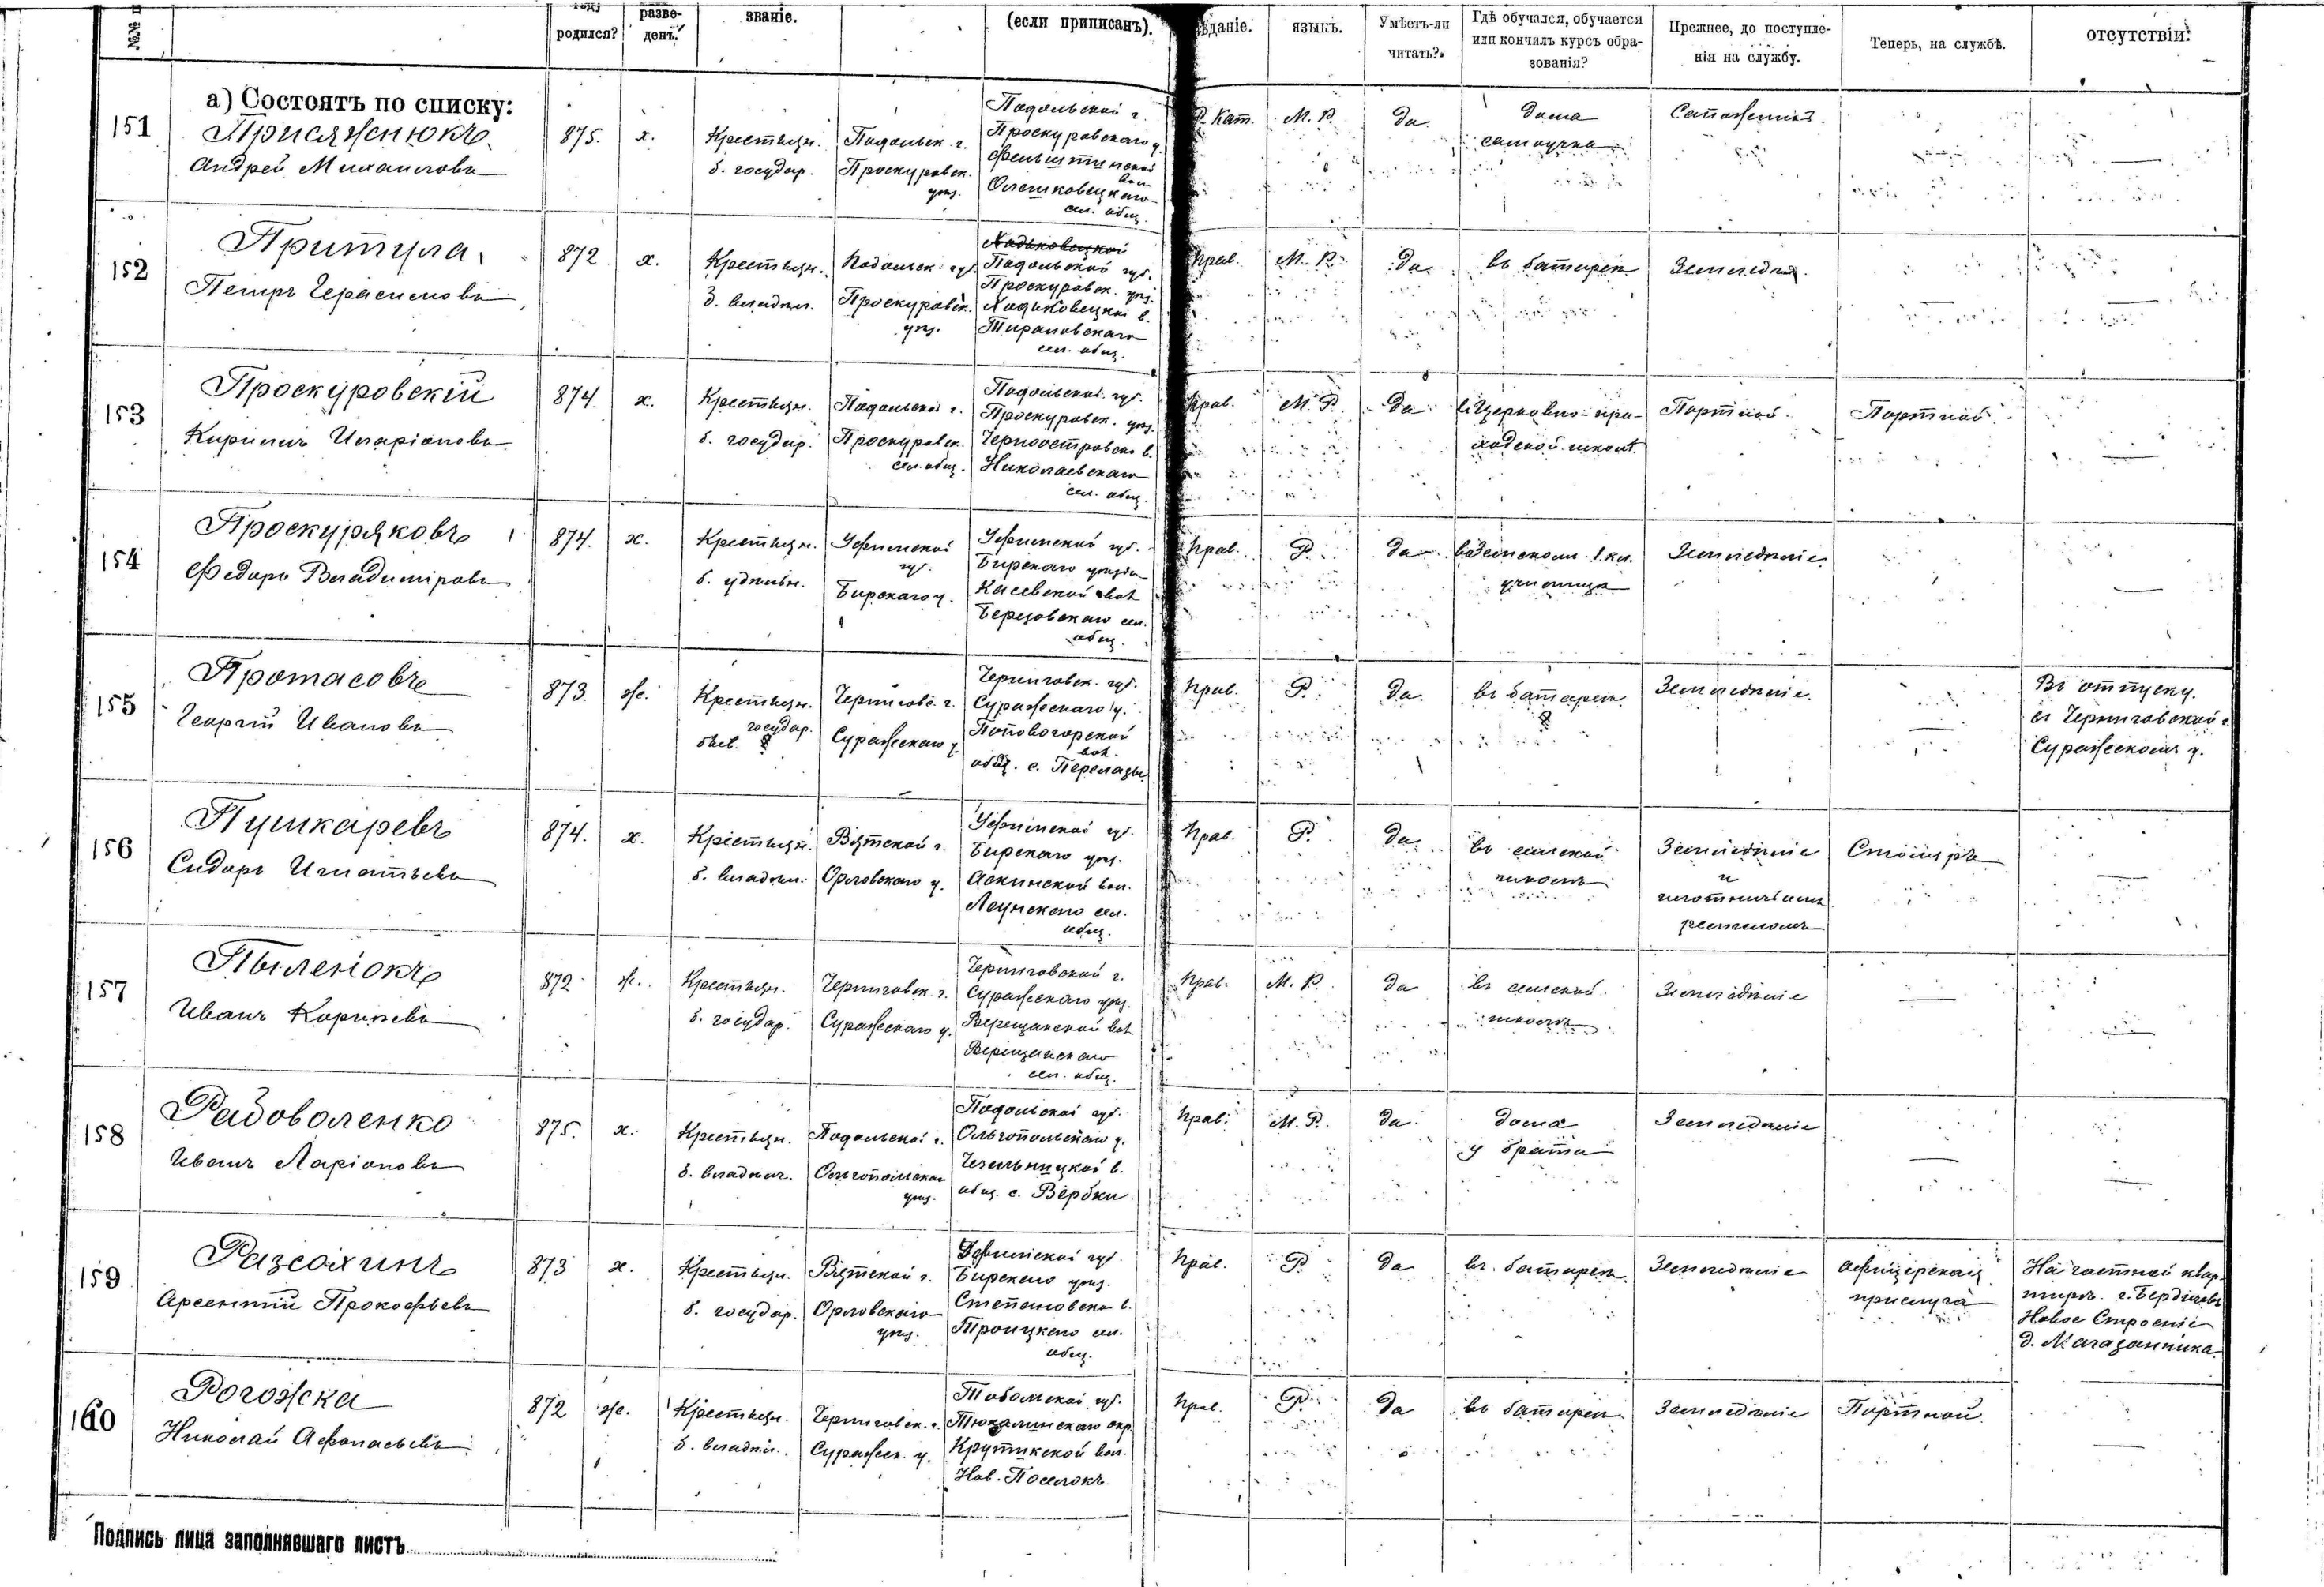 родился?
разве-
денъ.
званіе.
(если приписанъ).
языкъ.
Умѣетъ-ли
читать?
Гдѣ обучался, обучается
или кончилъ курсъ обра-
зованія?
Прежнее, до поступле-
нія на службу.
Теперь, на службѣ.
отсутствіи.
а) Состоятъ по списку:
151
Присяжнюкъ
Андрей Михаиловъ
875.
х.
Крестьян.
б. государ.
Подольск. г.
Проскуровск.
уѣз.
Подольской г.
Проскуровскаго у.
Фельштинской
вол.
Олешковецкаго
сел. общ.
Р. Кат.
М. Р.
да
дома
самоучка
Сапожникъ.
152
Притула
Петръ Герасимовъ
872
х.
Крестьян.
б. владѣл.
Подольск. губ.
Проскуровск.
уѣз.
Подольской губ.
Проскуровск. уѣз.
Ходьковецкой в.
Тирановскаго
сел. общ.
Прав.
М. Р.
да
въ батареѣ
Земледѣл.
153
Проскуровскій
Кириллъ Иларіоновъ
874.
х.
Крестьян.
б. государ.
Подольской г.
Проскуровск.
сел. общ.
Подольской губ.
Проскуровск. уѣз.
Черноостровск. в.
Николаевскаго
сел. общ.
Прав.
М. Р.
да
въ церковно-при-
ходской школѣ
Портной
Портной
154
Проскуряковъ
Федоръ Владиміровъ
874.
х.
Крестьян.
б. удѣльн.
Уфимской
губ.
Бирскаго у.
Уфимской губ.
Бирскаго уѣзда
Касевской вол.
Березовскаго сел.
общ.
Прав.
Р.
да
въ Земскомъ 1 кл.
училищѣ
Земледѣліе
155
Протасовъ
Георгій Ивановъ
873.
ж.
Крестьян.
государ.
Чернигов. г.
Суражскаго у.
Черниговск. губ.
Суражскаго у.
Поповогорской
вол.
общ. с. Перелазы
Прав.
Р.
да
въ батареѣ
Земледѣліе.
Въ отпуску.
въ Черниговской г.
Суражскомъ у.
156
Пушкаревъ
Сидоръ Игнатьевъ
874.
х.
Крестьян.
б. владѣл.
Вятской г.
Орловскаго у.
Уфимской губ.
Бирскаго уѣз.
Аскинской вол.
сел.
общ.
Прав.
Р.
да
въ сельской
школѣ
Земледѣліе
и
плотничьимъ
ремесломъ
Столяръ
157
Пыленокъ
Иванъ Корнѣевъ
872
ж.
Крестьян.
б. государ.
Черниговск. г.
Суражскаго у.
Черниговской г.
Суражскаго уѣз.
Верещакской вол.
Верещакскаго
сел. общ.
Прав.
М. Р.
да
въ сельской
школѣ
Земледѣліе
158
Радоволенко
Иванъ Ларіоновъ
875.
х.
Крестьян.
б. владѣл.
Подольской г.
Ольгопольскаго
уѣз.
Подольской губ.
Ольгопольскаго у.
Чечельницкой в.
общ. с. Вербки
Прав.
М. Р.
да
дома
у брата
Земледѣліе
159
Разсохинъ
Арсентій Прокофьевъ
873
х.
Крестьян.
б. государ.
Вятской г.
Орловскаго
уѣз.
Уфимской губ.
Бирскаго уѣз.
Степановской в.
Троицкаго сел.
общ.
Прав.
Р
да
въ батареѣ
Земледѣліе
Офицерская
прислуга
На частной квар-
тирѣ. г. Бердичевъ
Новое Строеніе
д. Магазанника
160
Рогожка
Николай Афанасьевъ
872
ж.
Крестьян.
б. владѣл.
Черниговск. г.
Суражск. у.
Тобольской губ.
Тюкалинскаго окр.
Крутинской вол.
Нов. Поселокъ.
Прав.
Р.
да
въ батареѣ
Земледѣліе
Портной
Подпись лица заполнявшаго листъ